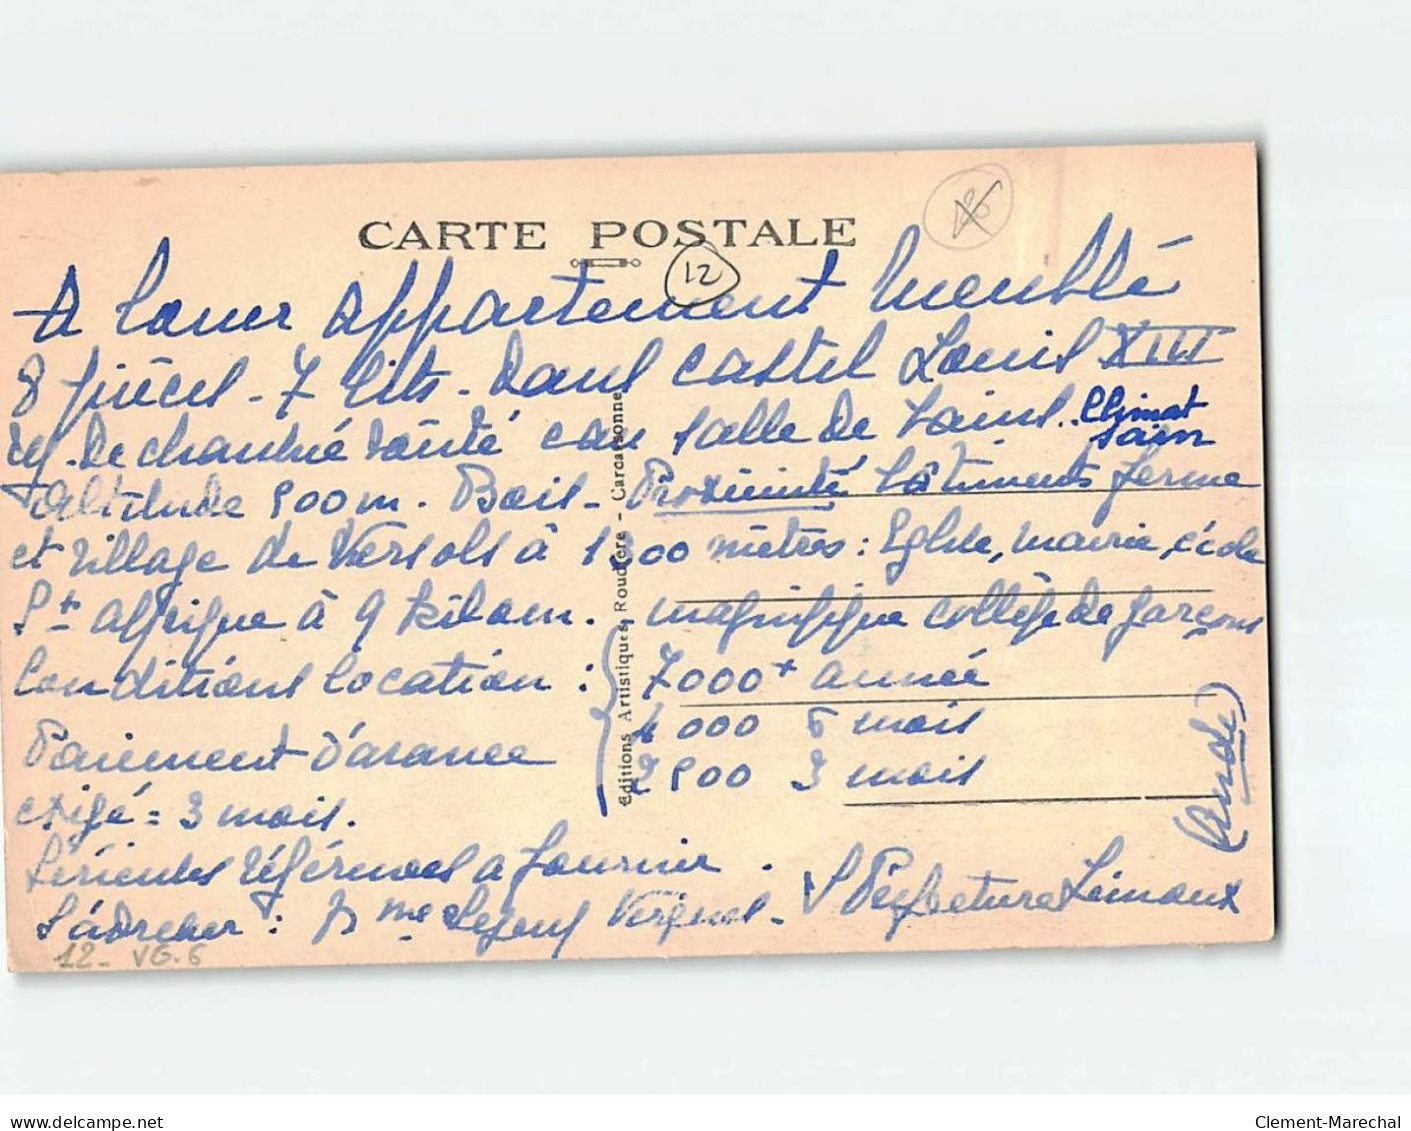 CARTE POSTALE
12
A louer appartement meublé
8 pièces - 7 lits - dans castel Louis XIII
de chaussée santé eau salle de bains. Climat
sain
Altitude 500 m. Bois - Proximité bâtiments ferme
et village de Versols à 1300 mètres : Eglise, mairie, école
St Affrique à 9 kilom. magnifique collège de garçons
Conditions location : 7000 + année
4000 6 mois
2500 3 mois
Paiement d'avance
exigé = 3 mois.
Sérieuses références à fournir.
S'adresser : Mme Vergnes - S/Préfecture Limoux
(Aude)
Editions Artistiques Roudière - Carcassonne
12 - VG.6
www.delcampe.net
Clement-Marechal